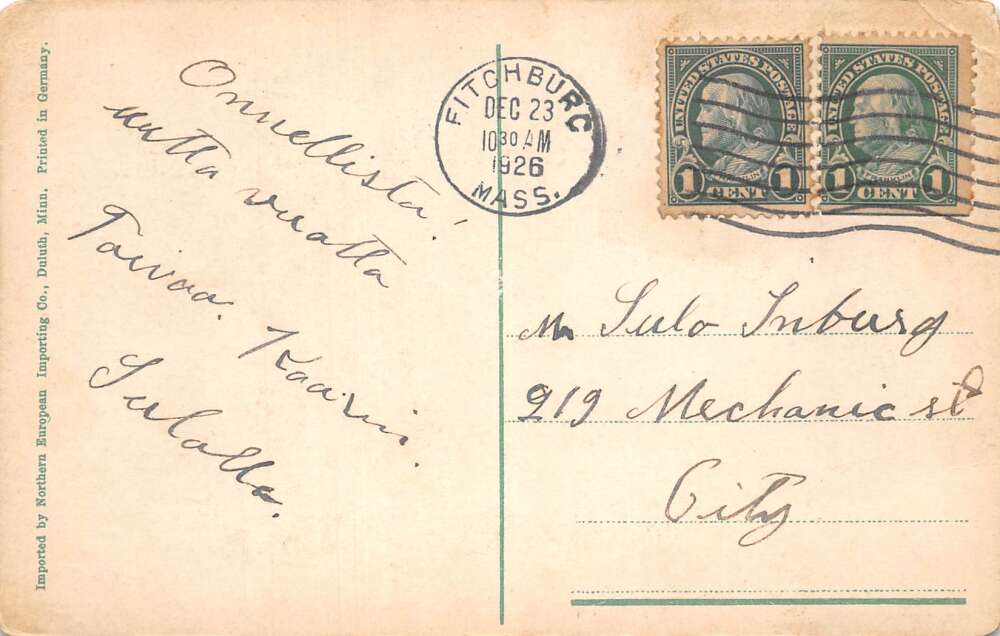 Imported by Northern European Importing Co., Duluth, Minn. Printed in Germany.
Onnellista!
uutta vuotta
Toivoo. Kaarin.
Sulolle.
FITCHBURG
DEC 23
10 30 AM
1926
MASS.
UNITED STATES POSTAGE
FRANKLIN
1 CENT 1
UNITED STATES POSTAGE
FRANKLIN
1 CENT 1
Mr Sulo Inburg
219 Mechanic st
City